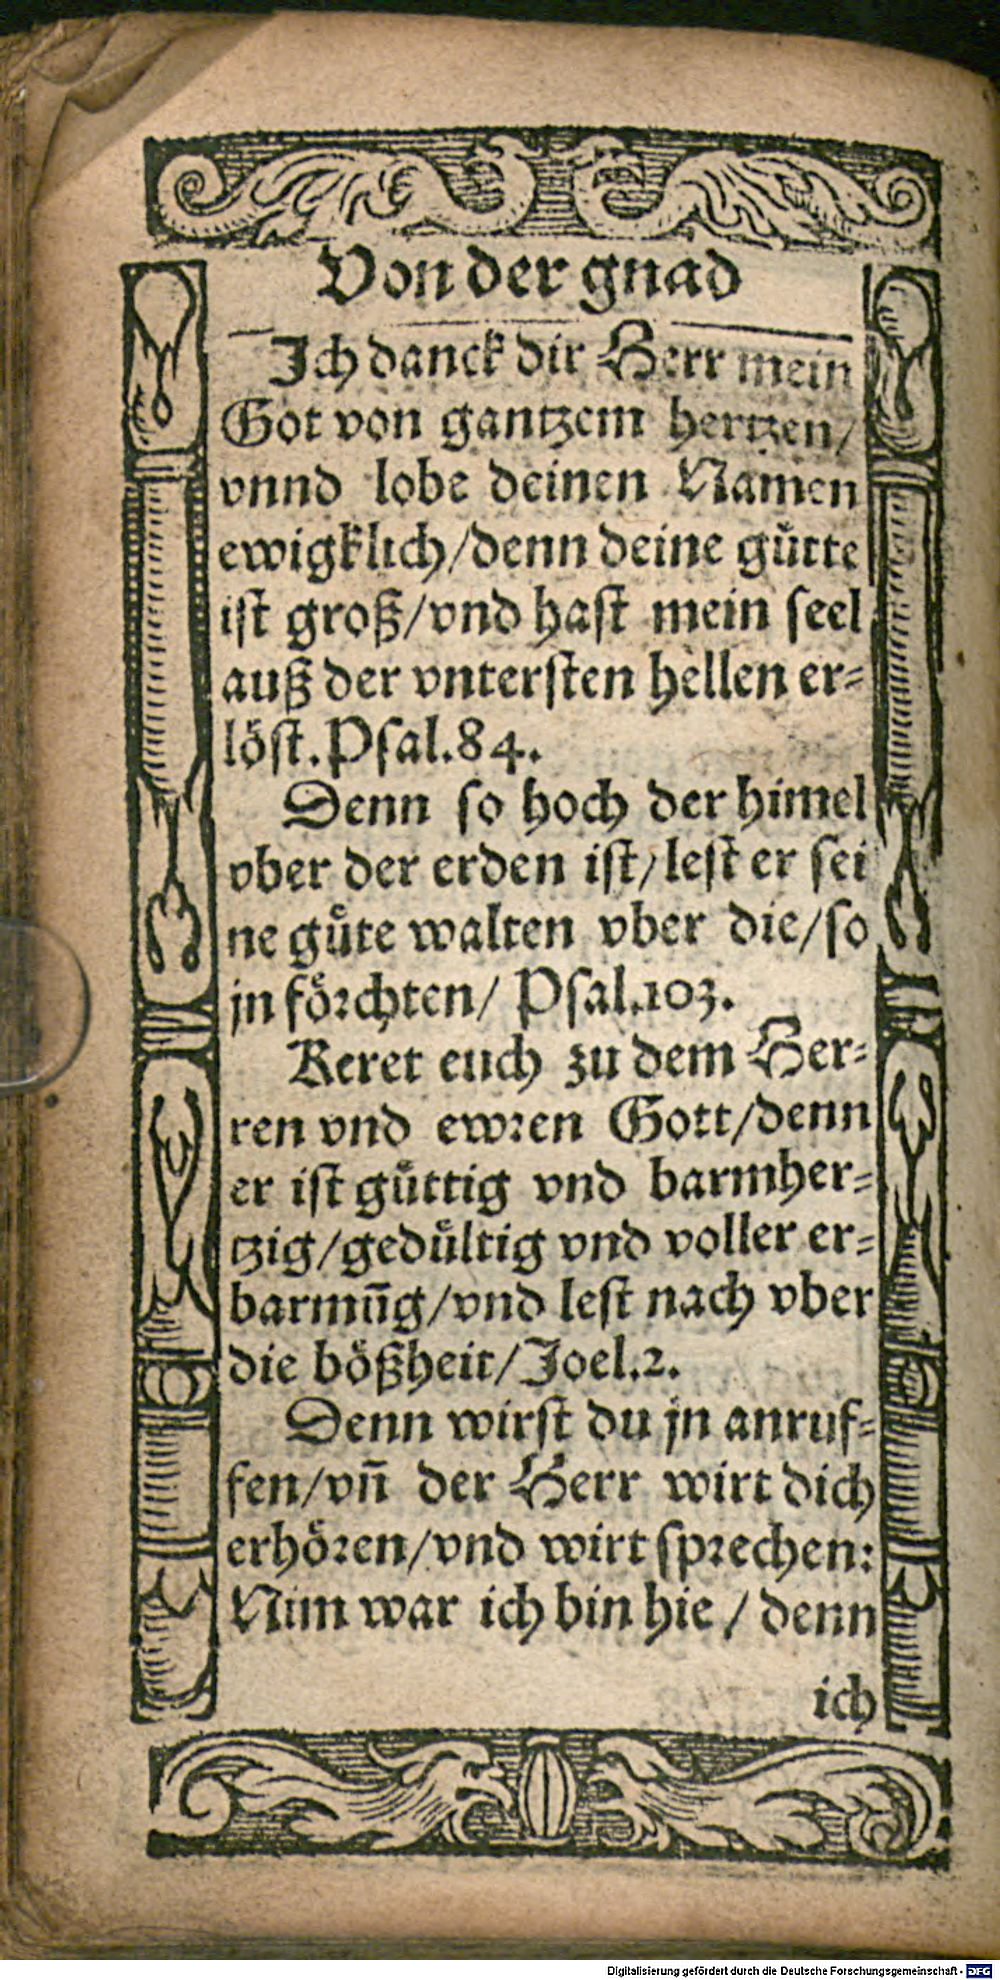 Von der gnad
Ich danck dir Herr mein
Got von gantzem hertzen/
vnnd lobe deinen Namen
ewigklich/denn deine gütte
ist groß/vnd hast mein seel
auß der vntersten hellen er-
löst. Psal. 84.
Denn so hoch der himel
vber der erden ist/lest er sei
ne gůte walten vber die/so
jn förchten/ Psal. 103.
Keret euch zu dem Her-
ren vnd ewren Gott/denn
er ist gůttig vnd barmher-
tzig/gedůltig vnd voller er-
barmūg/vnd lest nach vber
die bößheit/Joel. 2.
Denn wirst du jn anruf-
fen/vñ der Herr wirt dich
erhören/vnd wirt sprechen:
Nim war ich bin hie / denn
ich
Digitalisierung gefördert durch die Deutsche Forschungsgemeinschaft - DFG